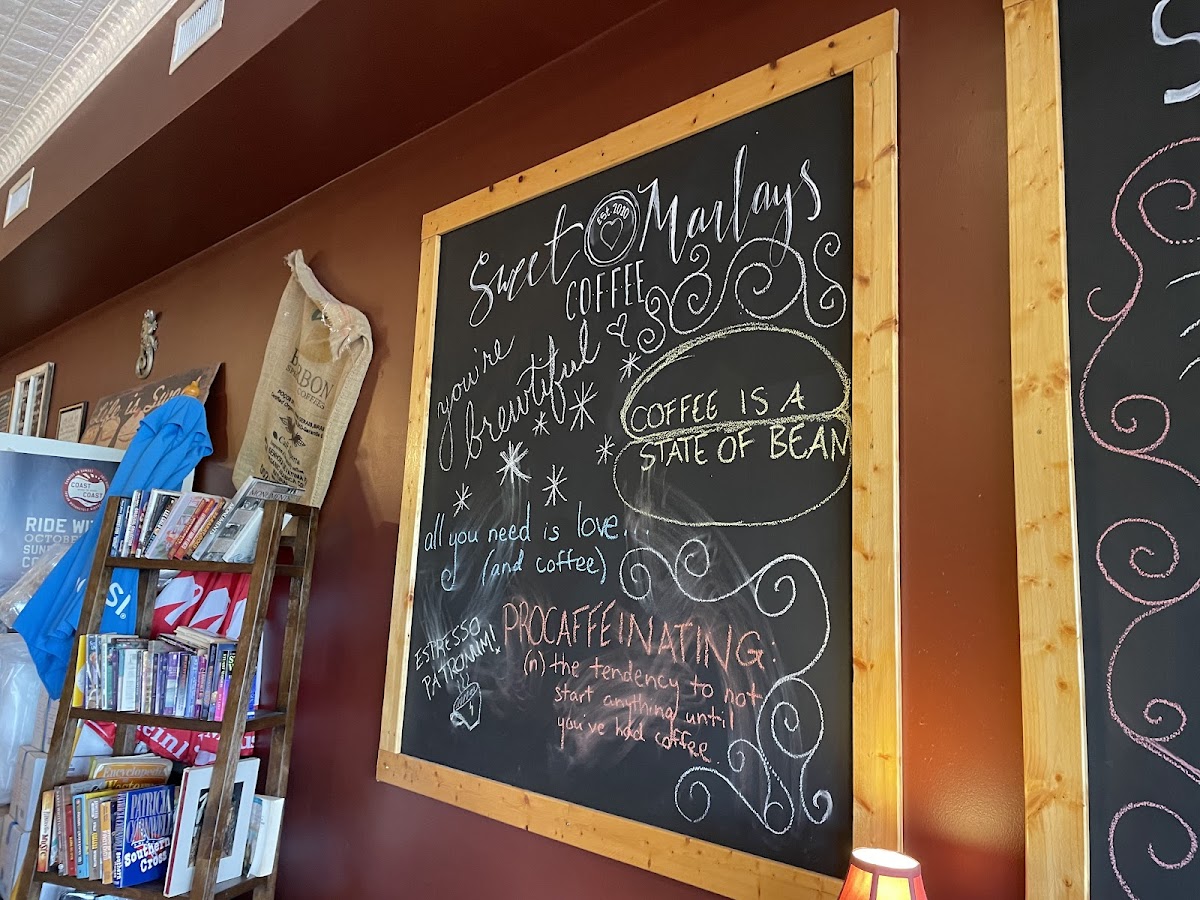 Sweet Marlays
EST. 2010
COFFEE
you're
brewtiful
COFFEE IS A
STATE OF BEAN
all you need is love...
(and coffee)
ESPRESSO
PATRONUM!
PROCAFFEINATING:
(n) the tendency to not
start anything until
you've had coffee.
COAST
COAST
RIDE WI
OCTOBE
SUN
PATRICIA
CORNWELL
Southern
Cross
Encyclopedia